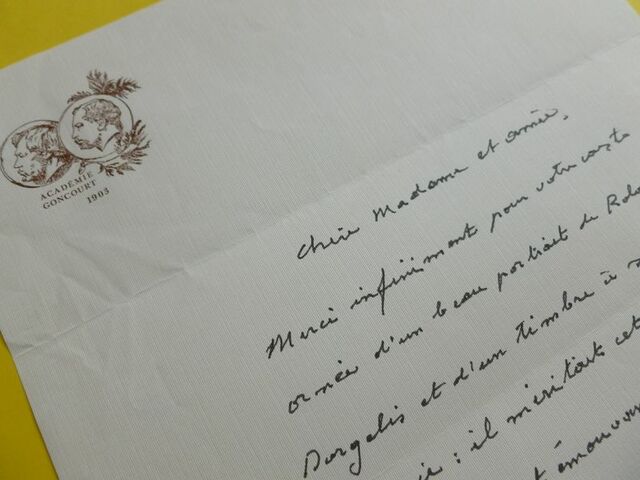 ACADÉMIE
GONCOURT
1903
Chère Madame et amie,
Merci infiniment pour votre carte
ornée d'un beau portrait de Rola
Dorgelès et d'un timbre à s
: il méritait cet
émouvan